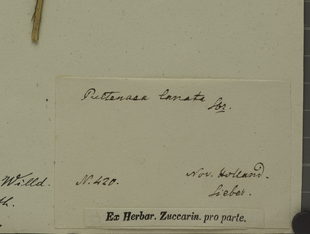 Pultenaea lanata
Sbr.
Willd.
th.
N. 420.
Nov. Holland.
Sieber.
Ex Herbar. Zuccarin. pro parte.